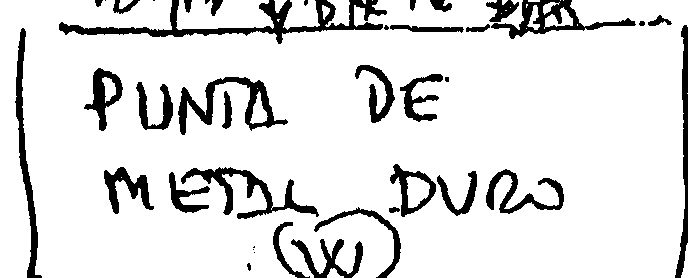 PUNTA DE
METAL DURO
W